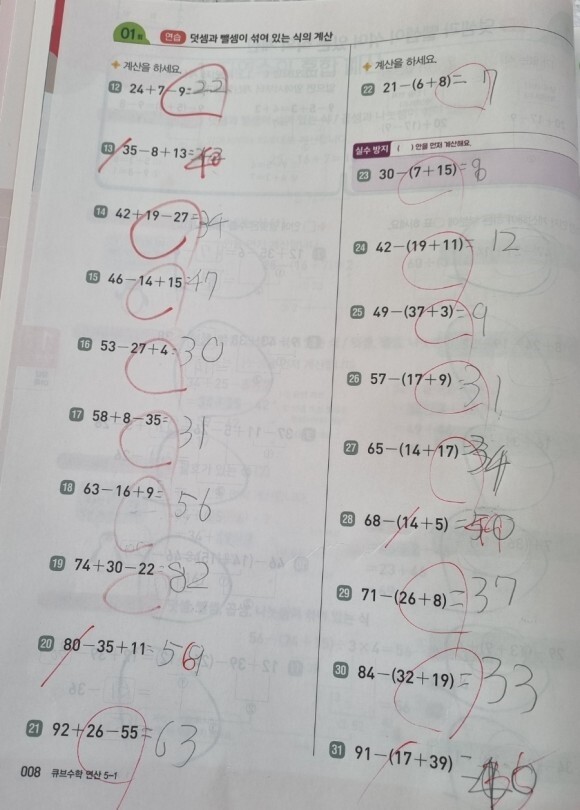 01일 연습 덧셈과 뺄셈이 섞여 있는 식의 계산
계산을 하세요.
12 24+7-9=22
13 35-8+13=40
14 42+19-27=34
15 46-14+15=47
16 53-27+4=30
17 58+8-35=31
18 63-16+9=56
19 74+30-22=82
20 80-35+11=56
21 92+26-55=63
008 큐브수학 연산 5-1
계산을 하세요.
22 21-(6+8)=7
실수 방지 ( ) 안을 먼저 계산해요.
23 30-(7+15)=8
24 42-(19+11)=12
25 49-(37+3)=9
26 57-(17+9)=31
27 65-(14+17)=34
28 68-(14+5)=
29 71-(26+8)=37
30 84-(32+19)=33
31 91-(17+39)=